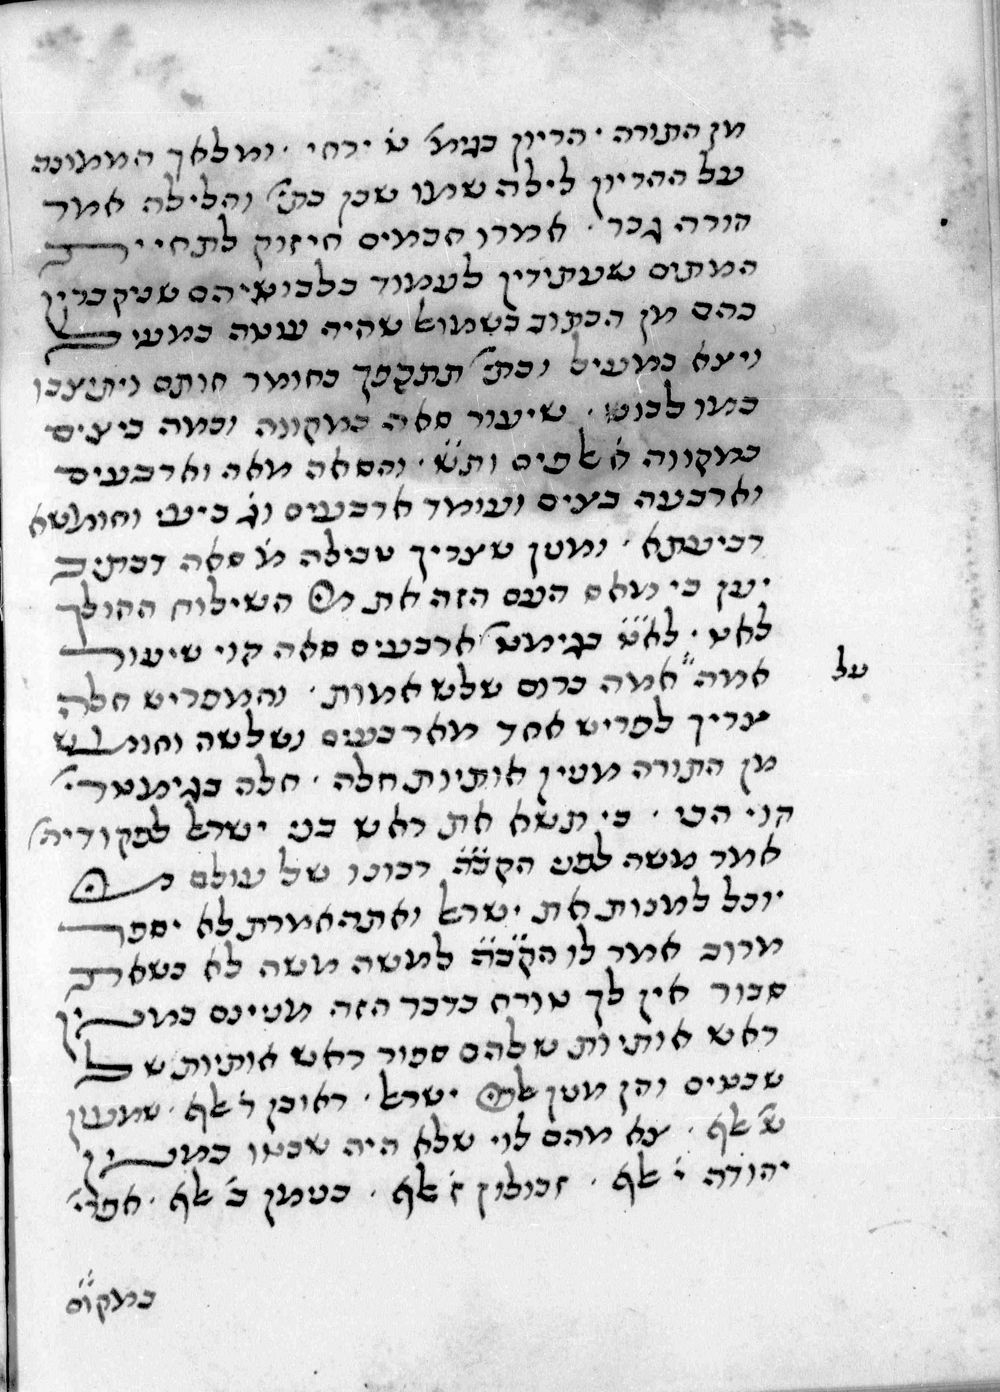 מן התורה · הריון בגימ' ט' ירחי · ומלאך הממונה
על ההריון לילה שמו שכן כתי' והלילה אמר
הורה גבר · אמרו חכמים חיזוק לתחיית
המתים שעתידין לעמוד בלבושיהם שניקברין
בהם מן הכתוב בשמואל שהיה עוטה במעיל
ויצא במעיל וכתי' תתהפך כחומר חותם ויתיצבו
כמו לבוש · שיעור סאה במקווה וכמה ביצים
במקווה ה' אלפים ותש" · והסאה מאה וארבעים
וארבעה בצים ועומד ארבעים וג' ביצי' וחומשא
רביעתא · ומניין שצריך טבילה מ' סאה דכתיב
יען כי מאס העם הזה את מי השילוח ההולך
לאט · לאט בגימט' ארבעים סאה קוי שיעור
אמה "אמה ברום שלש אמות · והמפריש חלה
על
צריך לפריש אחד מארבעים ושלשה וחומש
מן התורה מניין אותיות חלה · חלה בגימטרי'
קוי הכי · כי תשא את ראש בני ישראל לפקודיה'
אמר משה לפני הקב"ה רבונו של עולם מי
יוכל למנות את ישראל ואתה אמרת לא יספר
מרוב אמר לו הקב"ה למשה משה לא כשאתה
סבור אין לך טורח בדבר הזה מניינם במניין
ראש אותיות שלהם ספור ראש אותיות של
שבטים והן מניין של ישראל · ראובן ר' אלף · שמעון
ש' אלף · צא מהם לוי שלא היה שבטו במניין
יהודה י' אלף · זבולון ז' אלף · בנימן ב' אלף · אפר'
במקום